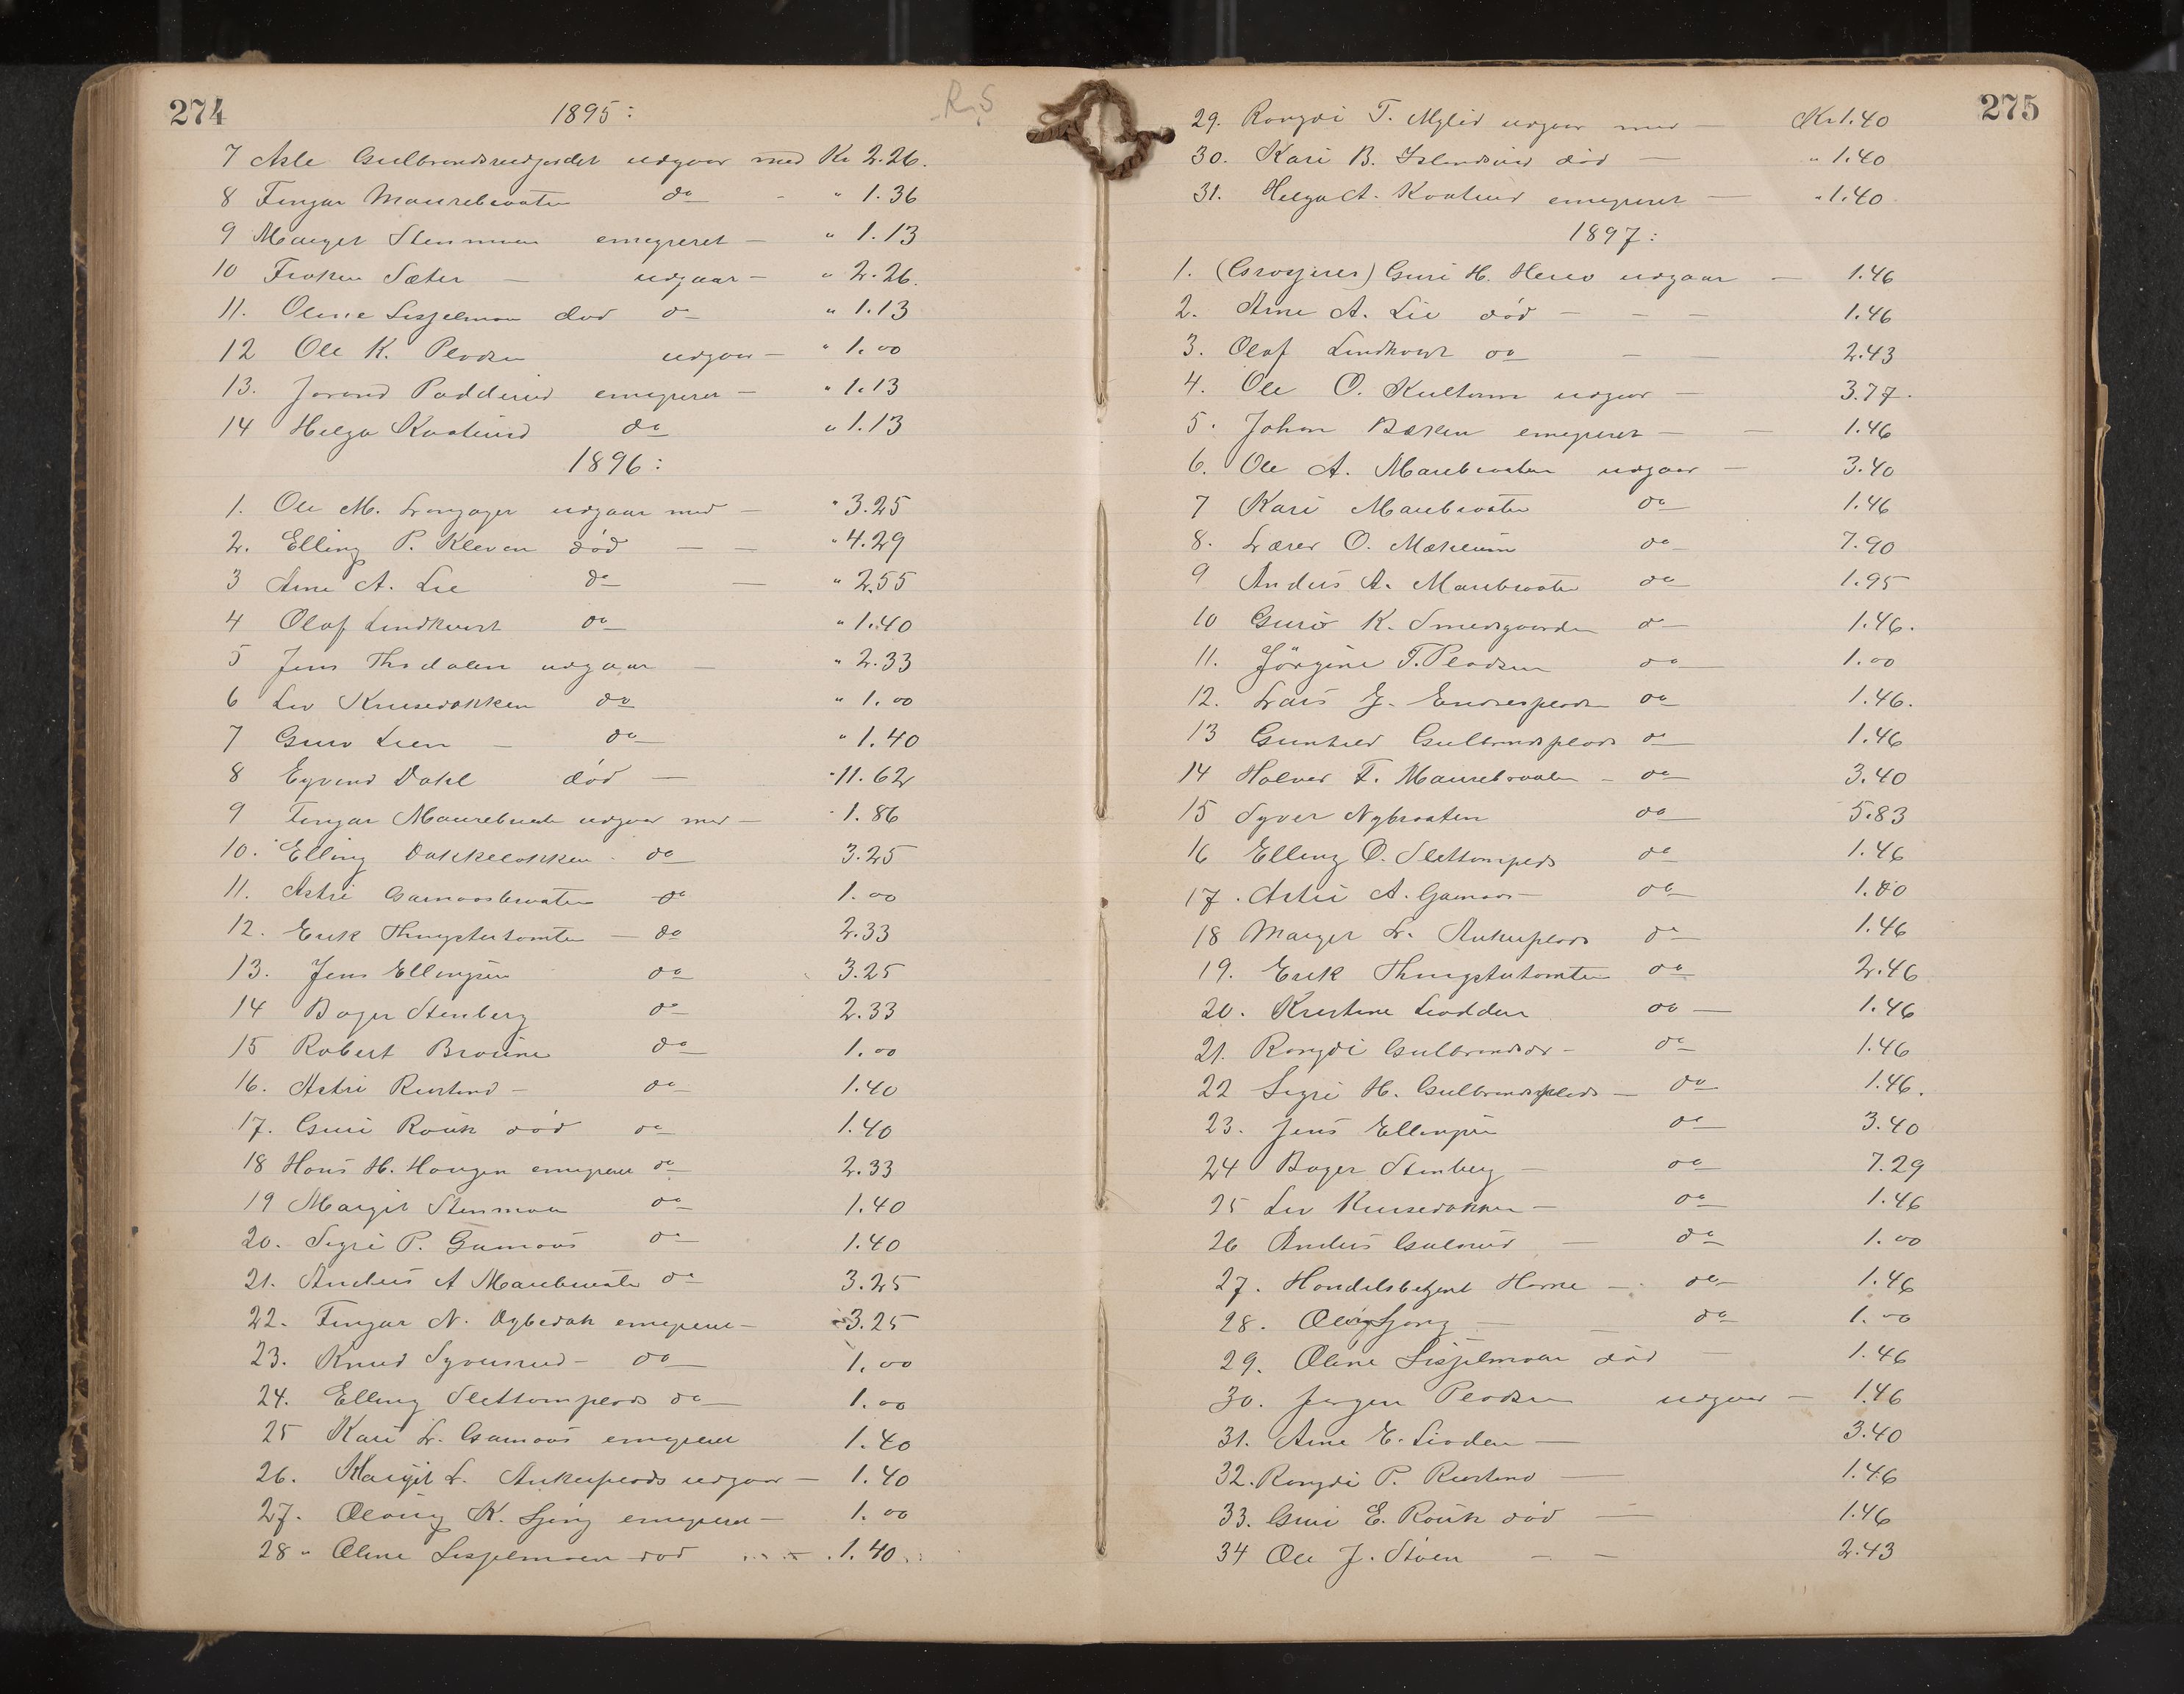 274
1895:
R.S
7 Asle Gulbrandsrudjordet udgaar med Kr 2.26.
8 Fingar Maurebraaten do - " 1.36
9 Margit Stenmoen emigreret — " 1.13
10 Frøken Sæter — udgaar — " 2.26.
11. Oline Lisjelmoen død do " 1.13
12 Ole K. Pladsen udgaar — " 1.00
13. Jorand emigreret — " 1.13
14 Helga Kaatrud do " 1.13
1896:
1. Ole M. Langager udgaar med — " 3.25
2. Elling P. Kleven død — — " 4.29
3 Arne A. Lie do — " 2.55
4 Olaf Lindkvist do " 1.40
5 Jens udgaar — " 2.33
6 Liv Krusedokken do " 1.00
7 Guro Lien — do " 1.40
8 Eyvind Dahl død — " 11.62
9 Fingar Maurebraaten udgaar med — " 1.86
10. Elling Dokkeløkken do 3.25
11. Astri Gamoosbraaten do 1.00
12. Erik Thingstutomten — do 2.33
13. Jens Ellingsen do 3.25
14 Bager Stenberg do 2.33
15 Robert do 1.00
16. Astri Rustand — do 1.40
17. Guri Rouk død do 1.40
18 Hans H. Haugen emigreret do 2.33
19 Margit Stenmoen do 1.40
20. Sigri P. Gamoos do 1.40
21. Anders A Maurebraaten do 3.25
22. Fingar N. emigreret — 3.25
23. Knud Syversrud — do 1.00
24. Elling Slettemoplads do 1.00
25 Kari L. Gamoos emigreret 1.40
26. Margit L. Ankerplads udgaar — 1.40
27. Olaug K. Gjeng emigreret — 1.00
28 " Oline Lisjelmoen død 1.40
275
29. Rangdi T. Myhre udgaar med — Kr 1.40
30. Kari B. død — " 1.40
31. Helga A. Kaatrud emigreret — " 1.40
1897:
1. Guri H. udgaar — 1.46
2. Arne A. Lie død — — — 1.46
3. Olaf Lindkvist do — — 2.43
4. Ole O. udgaar — 3.77.
5. Johan Bakken emigreret — — 1.46
6. Ole A. Maurebraaten udgaar — 3.40
7 Kari Maurebraaten do 1.46
8. Lærer O. do 7.90
9 Anders A. Maurebraaten do 1.95
10 Guri K. Smedsgaarden do 1.46.
11. Jörgine T. Pladsen do 1.00
12. Lars J. Endresplads do 1.46.
13 Gunhild Gulbrandsplads do 1.46
14 Halvor F. Maurebraaten — do 3.40
15 Syver Nybraaten do 5.83
16 Elling O. Slettemoplads do 1.46
17. Astri A. Gamoos — do 1.00
18 Margit L. Ankerplads do 1.46
19. Erik Thingstutomten do 2.46
20. Kristine Lodden do — 1.46
21. Rangdi Gulbrandsdr — do 1.46
22 Sigri H. Gulbrandsplads — do 1.46.
23. Jens Ellingsen do 3.40
24 Bager Stenberg — do 7.29
25 Liv Krusedokken — do 1.46
26 Anders Gulsrud — do 1.00
27. Handelsbetjent Horne — do 1.46
28. Olaug Gjeng — — do 1.00
29. Oline Lisjelmoen død — 1.46
30. Jørgen Pladsen udgaar — 1.46
31. Arne E. Lioden — 3.40
32. Rangdi P. Rustand — 1.46
33. Guri E. Rouk død — 1.46
34 Ole J. Støen — — 2.43